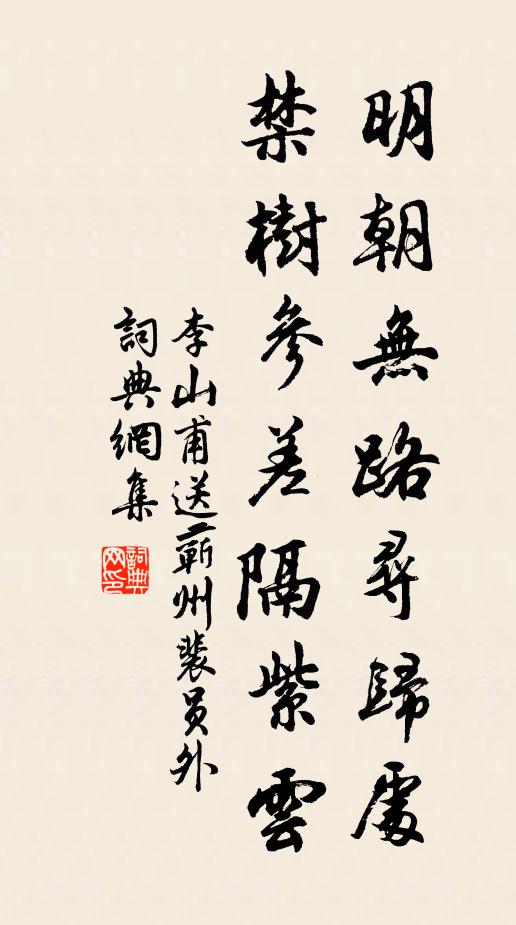 明朝無路尋歸處
禁樹參差隔紫雲
李山甫送蘄州裴员外
詞典網集
詞典網印